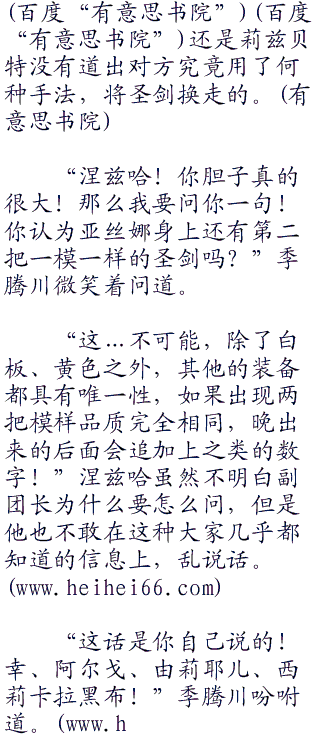 (百度“有意思书院”)(百度
“有意思书院”)还是莉兹贝
特没有道出对方究竟用了何
种手法，将圣剑换走的。(有
意思书院)
“涅兹哈！你胆子真的
很大！那么我要问你一句！
你认为亚丝娜身上还有第二
把一模一样的圣剑吗？”季
腾川微笑着问道。
“这…不可能，除了白
板、黄色之外，其他的装备
都具有唯一性，如果出现两
把模样品质完全相同，晚出
来的后面会追加上之类的数
字！”涅兹哈虽然不明白副
团长为什么要怎么问，但是
他也不敢在这种大家几乎都
知道的信息上，乱说话。
(www.heihei66.com)
“这话是你自己说的！
幸、阿尔戈、由莉耶儿、西
莉卡拉黑布！”季腾川吩咐
道。(www.h